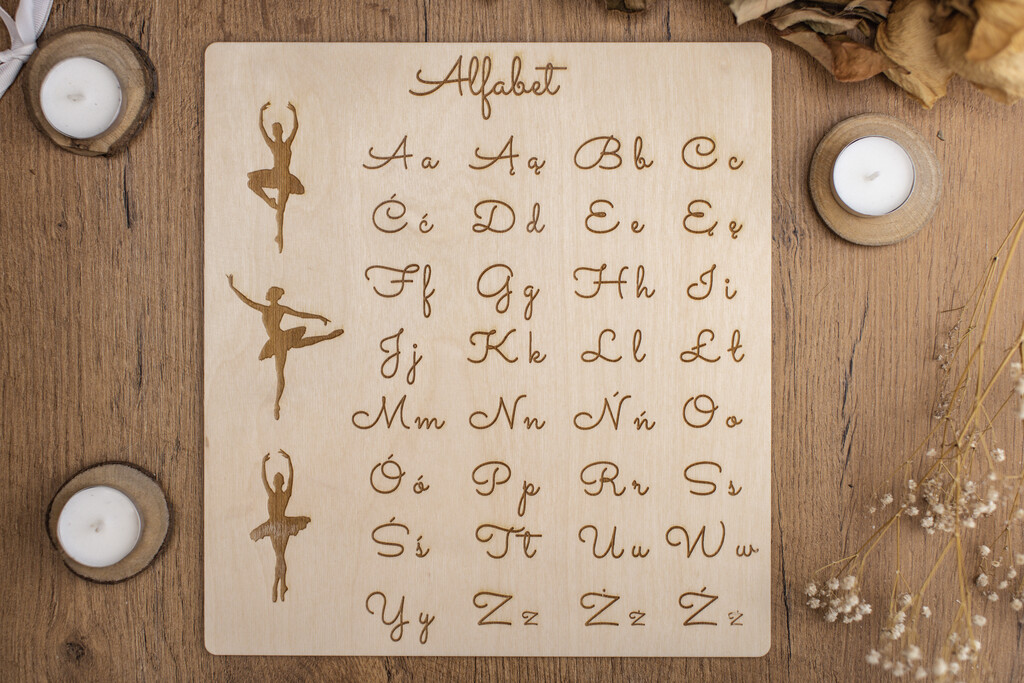 Alfabet
A a Ą ą B b C c
Ć ć D d E e Ę ę
F f G g H h I i
J j K k L l Ł ł
M m N n Ń ń O o
Ó ó P p R r S s
Ś ś T t U u W w
Y y Z z Ż ż Ź ź